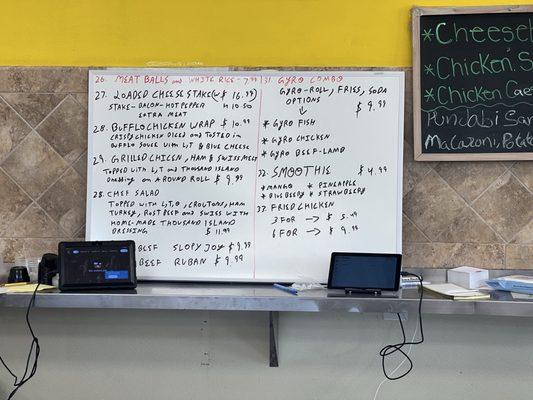 26. MEAT BALLS and WHITE RICE - 7.99
27. LOADED CHEESE STAKE(W $ 16.99)
STAKE-BACON-HOTPEPPER H 10.50
EXTRA MEAT
28. BUFFLO CHICKEN WRAP $ 10.99
CRISPY CHICKEN DICED and TOSTED in
BUFFLO SOUCE WITH L,T & BLUE CHEESE
29. GRILLED CHICEN, HAM & SWISS MELT
TOPPED WITH L,T and THOUSAND ISLAND
Dressing on A ROUND ROLL $ 9.99
28. CHEF SALAD
TOPPED WITH L,T, O, CROUTONS, HAM
TURKEY, ROST BEEF and SWISS WITH
HOME-MADE THOUSAND ISLAND
DRESSING $ 11.99
BEEF SLOPY JOY $ 9.99
BEEF RUBAN $ 9.99
31. GYRO COMBO
GYRO-ROLL, FRIES, SODA
OPTIONS $ 9.99
* GYRO FISH
* GYRO CHICKEN
* GYRO BEEF-LAMB
32. SMOOTHIE $ 4.99
* MANGO * PINEAPPLE
* BLUE BERRY * STRAWBERRY
33. FRIED CHICKEN
3 FOR → $ 5.49
6 FOR → $ 9.99
* Cheese
* Chicken S
* Chicken Cae
Punjabi Sam
Macaroni, Potato